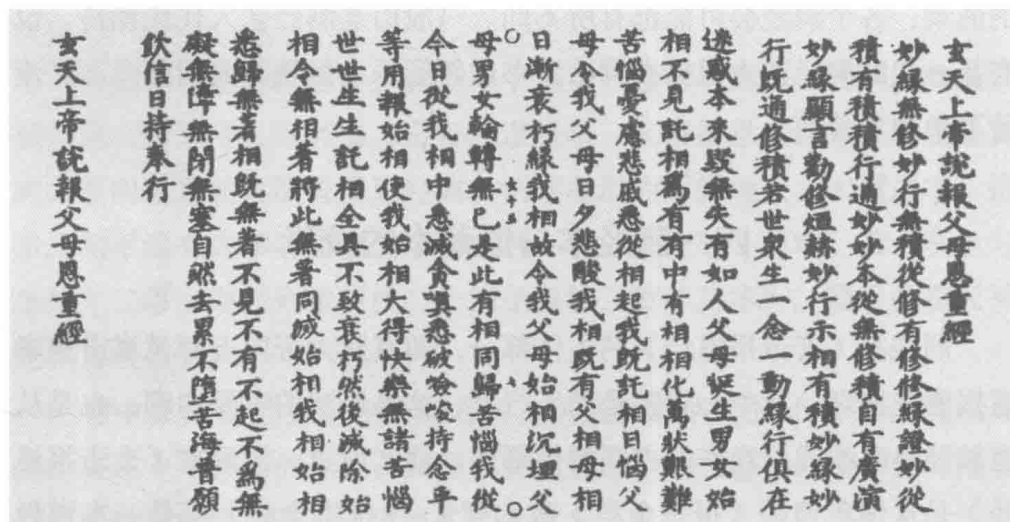 玄天上帝說報父母恩重經
妙緣無修妙行無積從修有修修緣證妙從
積有積積行通妙妙本從無修積自有廣演
妙緣顯言勸修煙赫妙行示相有積妙緣妙
行既通修積若世衆生一念一動緣行俱在
迷惑本來毀無失有如人父母娫生男女始
相不見託相爲有有中有相相化萬狀艱難
苦惱憂慮悲戚悉從相起我既託相日惱父
母令我父母日夕悲酸我相既有父相母相
日漸衰朽緣我相故令我父母始相沉埋父
母男女輪轉無已是此有相同歸苦惱我從
今日從我相中悉滅貪嗔悉破慳妄持念平
等用報始相使我始相大得快樂無諸苦惱
世世生生託相全真不致衰朽然後滅除始
相令無相著將此無著同滅始相我相始相
悉歸無著相既無著不見不有不起不爲無
礙無障無閉無塞自然去累不墮苦海普願
飲信日持奉行
玄天上帝說報父母恩重經